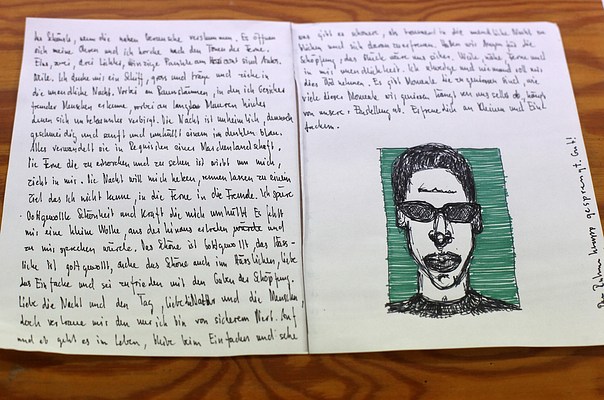 he Schönste, wenn die nahen Geräusche verstummen. Es öffnen
sich meine Ohren und ich horche nach den Tönen der Ferne.
Eins, zwei, drei Lichter, Winzige Punkte am Horizont sind Ander-
Ich denke mir ein Schiff, gross und träge und ziehe in
die unendliche Nacht. Vorbei an Baumstämmen, in den ich Gesichter
fremder Menschen erkenne, vorbei an langen Mauern hinter
denen sich unbekanntes verbirgt. Die Nacht ist unheimlich, dennoch
geschmeidig und sanft und umhüllt einem im dunklen blau.
Alles verwandelt sie in Requisiten einer Märchenlandschaft.
Die Ferne die zu erforschen und zu sehen ist wirbt um mich,
zieht in mir. Die Nacht will mich heben, nennen lassen zu einem
Ziel das ich nicht kenne, in die Ferne in die Fremde. Ich spüre
Gottgewollte Schönheit und Kraft die mich umhüllt. Es fehlt
mir eine kleine Wolke, aus der hinaus
zu mir sprechen würde. Das Schöne ist Gottgewollt, das Häss-
liche ist gottgewollt, suche das Schöne auch im Hässlichen, liebe
das Einfache und sei zufrieden mit den Gaben der Schöpfung.
Liebe die Nacht und den Tag, liebe die Natur und die Menschen,
doch vertraue mir den nur ich bin von sicherem Wert. Auf
und es geht es im Leben, bleibe beim Einfachen und sehe
was gibt es schöner, als in die unendliche Nacht zu
blicken und sich daran zu erfreuen. Haben wir Augen für die
Schöpfung, das Glück wäre uns sicher. Weite, nähe, Ferne und
in mir unendlichkeit. Ich schweige und niemand soll mir
dies
viele dieser Momente wir geniessen hängt von uns selbst ab
von unserer Einstellung ab. Erfreue dich an Kleinem und Einf
fachem.
Den Rahmen knapp gesprengt. Gut!